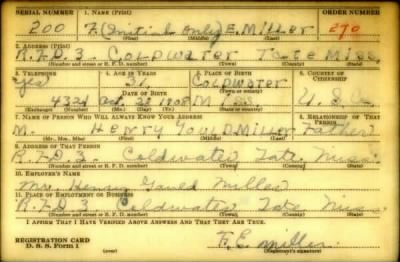 SERIAL NUMBER 1. NAME (Print) ORDER NUMBER
200 F. (Initial only) E. Miller 270
2. ADDRESS (Print)
R.F.D. 3. COLDWATER TATE MISS.
(Number and street or R. F. D. number) (Town) (County) (State)
3. TELEPHONE 4. AGE IN YEARS 5. PLACE OF BIRTH 6. COUNTRY OF CITIZENSHIP
Yes Coldwater
DATE OF BIRTH
4321 1908 Miss. U.S.
(Exchange) (Number) (Mo.) (Day) (Yr.) (State or country)
7. NAME OF PERSON WHO WILL ALWAYS KNOW YOUR ADDRESS 8. RELATIONSHIP OF THAT PERSON
M. HENRY GOULD MILLER Father
(Mr., Mrs., Miss) (First) (Middle) (Last)
9. ADDRESS OF THAT PERSON
R.F.D. 3. Coldwater Tate Miss.
(Number and street or R. F. D. number) (Town) (County) (State)
10. EMPLOYER'S NAME
Mr. Henry Gould Miller
11. PLACE OF EMPLOYMENT OR BUSINESS
R.F.D. 3. Coldwater Tate Miss.
(Number and street or R. F. D. number) (Town) (County) (State)
I AFFIRM THAT I HAVE VERIFIED ABOVE ANSWERS AND THAT THEY ARE TRUE.
REGISTRATION CARD
D. S. S. Form 1 F. E. Miller